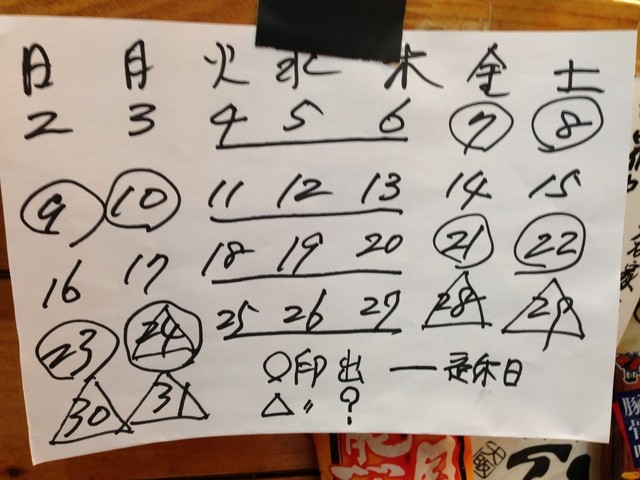 日 月 火 水 木 金 土
2 3 4 5 6 7 8
9 10 11 12 13 14 15
16 17 18 19 20 21 22
23 24 25 26 27 28 29
30 31
○印出 — 定休日
△〃 ?